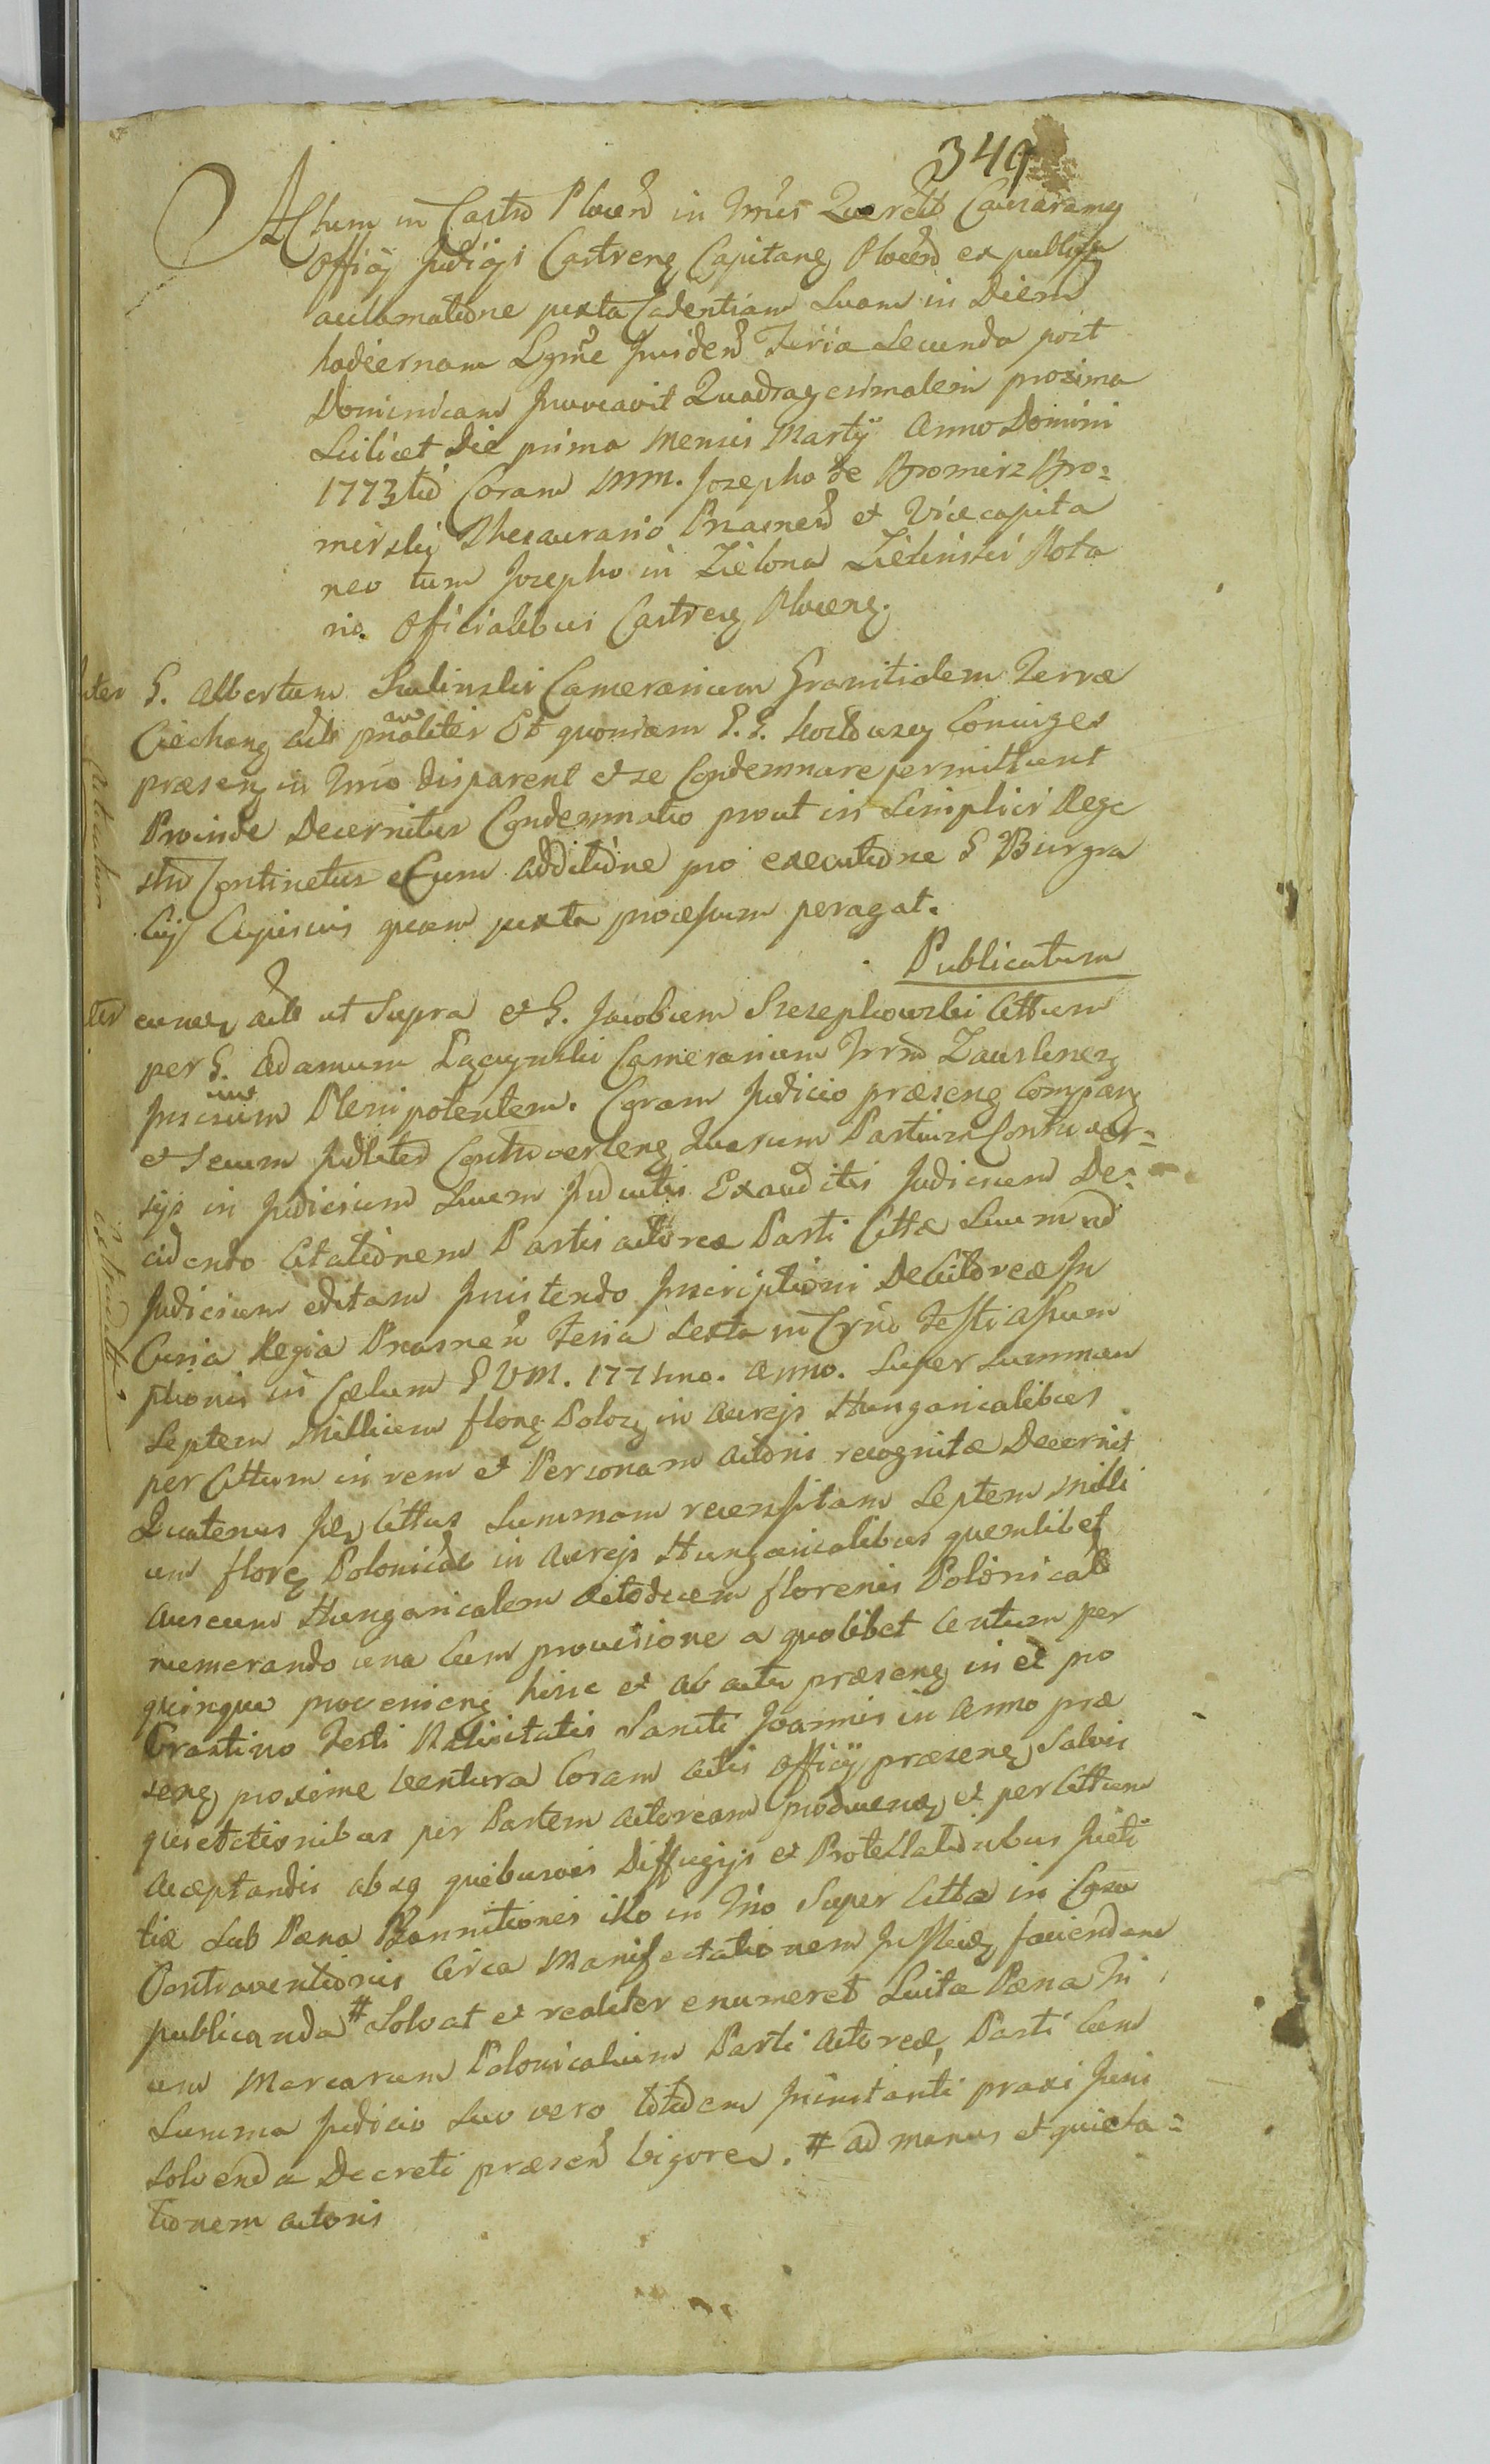 349
Actum in Castro Plocen in Tnis Querel Causarumq
Officij Judicij Castrenq Capitanq Plocen ex publica
acclamatione juxta Cadentiam Suam in Diem
hodiernam Lgme Inciden Feria Secunda post
Dominicam Invocavit Quadragesimalem proxima
Scilicet Die prima Mensis Martij Anno Domini
1773tio Coram MM. Josepho de Bromierz Bro=
mirski Thesaurario Prasnen et Vicecapita
neo tum Josepho in Zielona Zielinski Nota
rio. Officialibus Castrenq Plocenq.
Inter G. Albertum Sulinski Camerarium Granitialem Terræ
Ciechanq act Et quoniam G.G. Conjuges
præsenq in Tnio disparent et se Condemnare permittunt
Proinde Decernitur Condemnatio prout in Simplici Rege
stro Continetur et Cum additione pro executione G Burgra
bij Cujusvis quam juxta processum peragat.
Publicatum
ter eundq act ut Supra et G. Jacobum Szczepkowski Cittum
per G. Adamum Camerarium Trrm Zauskrnenq
Plenipotentem. Coram Judicio præsenq Comparq
et Secum Judlter Controvertenq Quarum Partium Controver=
sijs in Judicium Suum Inductis Exauditis Judicium De=
cidendo Citationem Partis actoreæ Parti Cittæ Suum ad
Judicium editam Insistendo Inscriptioni Debitoreæ In
Curia Regia Prasnen Feria Sexta in Crno Festi Assum
ptionis in Cælum B V M. 1771mo. Anno. Super Summam
Septem Millium florq Polozq in Aureis Hungaricalibus
per Cittum in rem et Personam Actoris recognitæ Decernit
Quatenus Idq Cittus Summam recensitam Septem Milli
um florq Polonical in Aureis Hungaricalibus quemlibet
Aureum Hungaricalem Octodecem florenis Polonicalb
numerando una Cum provisione a quolibet Centum per
quinque provenienq hinc et ab actu præsenq in et pro
Crastino Festi Nativitatis Sancti Joannis in Anno præ
senq proxime Ventura Coram Actis Officij præsenq Salvis
quietationibus per Partem Actoream producenq et per Cittum
Acceptandis absq quibusvis Diffugijs et Protestationibus Justi
tiæ Sub Pæna Bannitionis illo in Tnio Super Citta in Casu
Contraventionis Circa Manifestationem faciendam
publicanda # Solvat et realiter enumeret Luita Pæna Tri
um Marcarum Polonicalium Parti Actoreæ, Parti Cum
Summa Judicio Suo vero totidem Ininstanti praxi Juris
Solvenda Decreti præsen Vigore. # ad manus et quieta=
tionem actoris